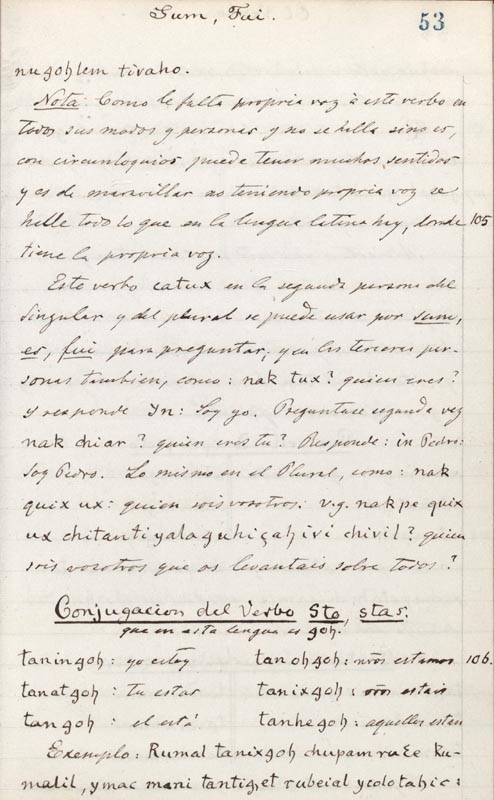 Sum, Fui.
53
nugohlem tivaho.
Nota. Como le falta propria voz à este verbo en
todos sus modos y personas y no se halla sino es,
con circunloquios puede tener muchos sentidos
y es de maravillar no teniendo propria voz se
halle todo lo que en la lengua latina hay, donde 105
tiene la propria voz.
Este verbo catux en la segunda persona del
singular y del plural se puede usar por sum,
es, fui para preguntar, y en las terceras per-
sonas tambien, como: nak tux? quien eres?
y responde Yn: Soy yo. Preguntase segunda vez
nak chiar? quien eres tu? Responde: in Pedro:
Soy Pedro. Lo mismo en el Plural, como: nak
quix ux: quien sois vosotros: v.g. nak pe quix
ux chitantiyalaguhiçahivi chivil? quien
sois vosotros que os levantais sobre todos?
Conjugacion del Verbo Sto, stas.
que en esta lengua es goh.
taningoh: yo estoy tanohgoh: nros estamos 106.
tanatgoh: tu estas tanixgoh: vros estais
tangoh: el está tanhegoh: aquellos estan
Exemplo: Rumal tanixgoh chupam ku-
malil, y mac mani tantiget rubeial ycolotahic: